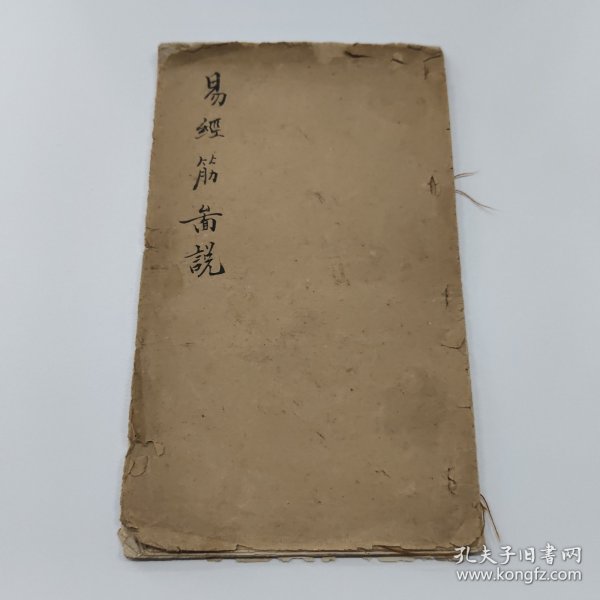 易經筋畣說
孔夫子旧書网
www.kongfz.com